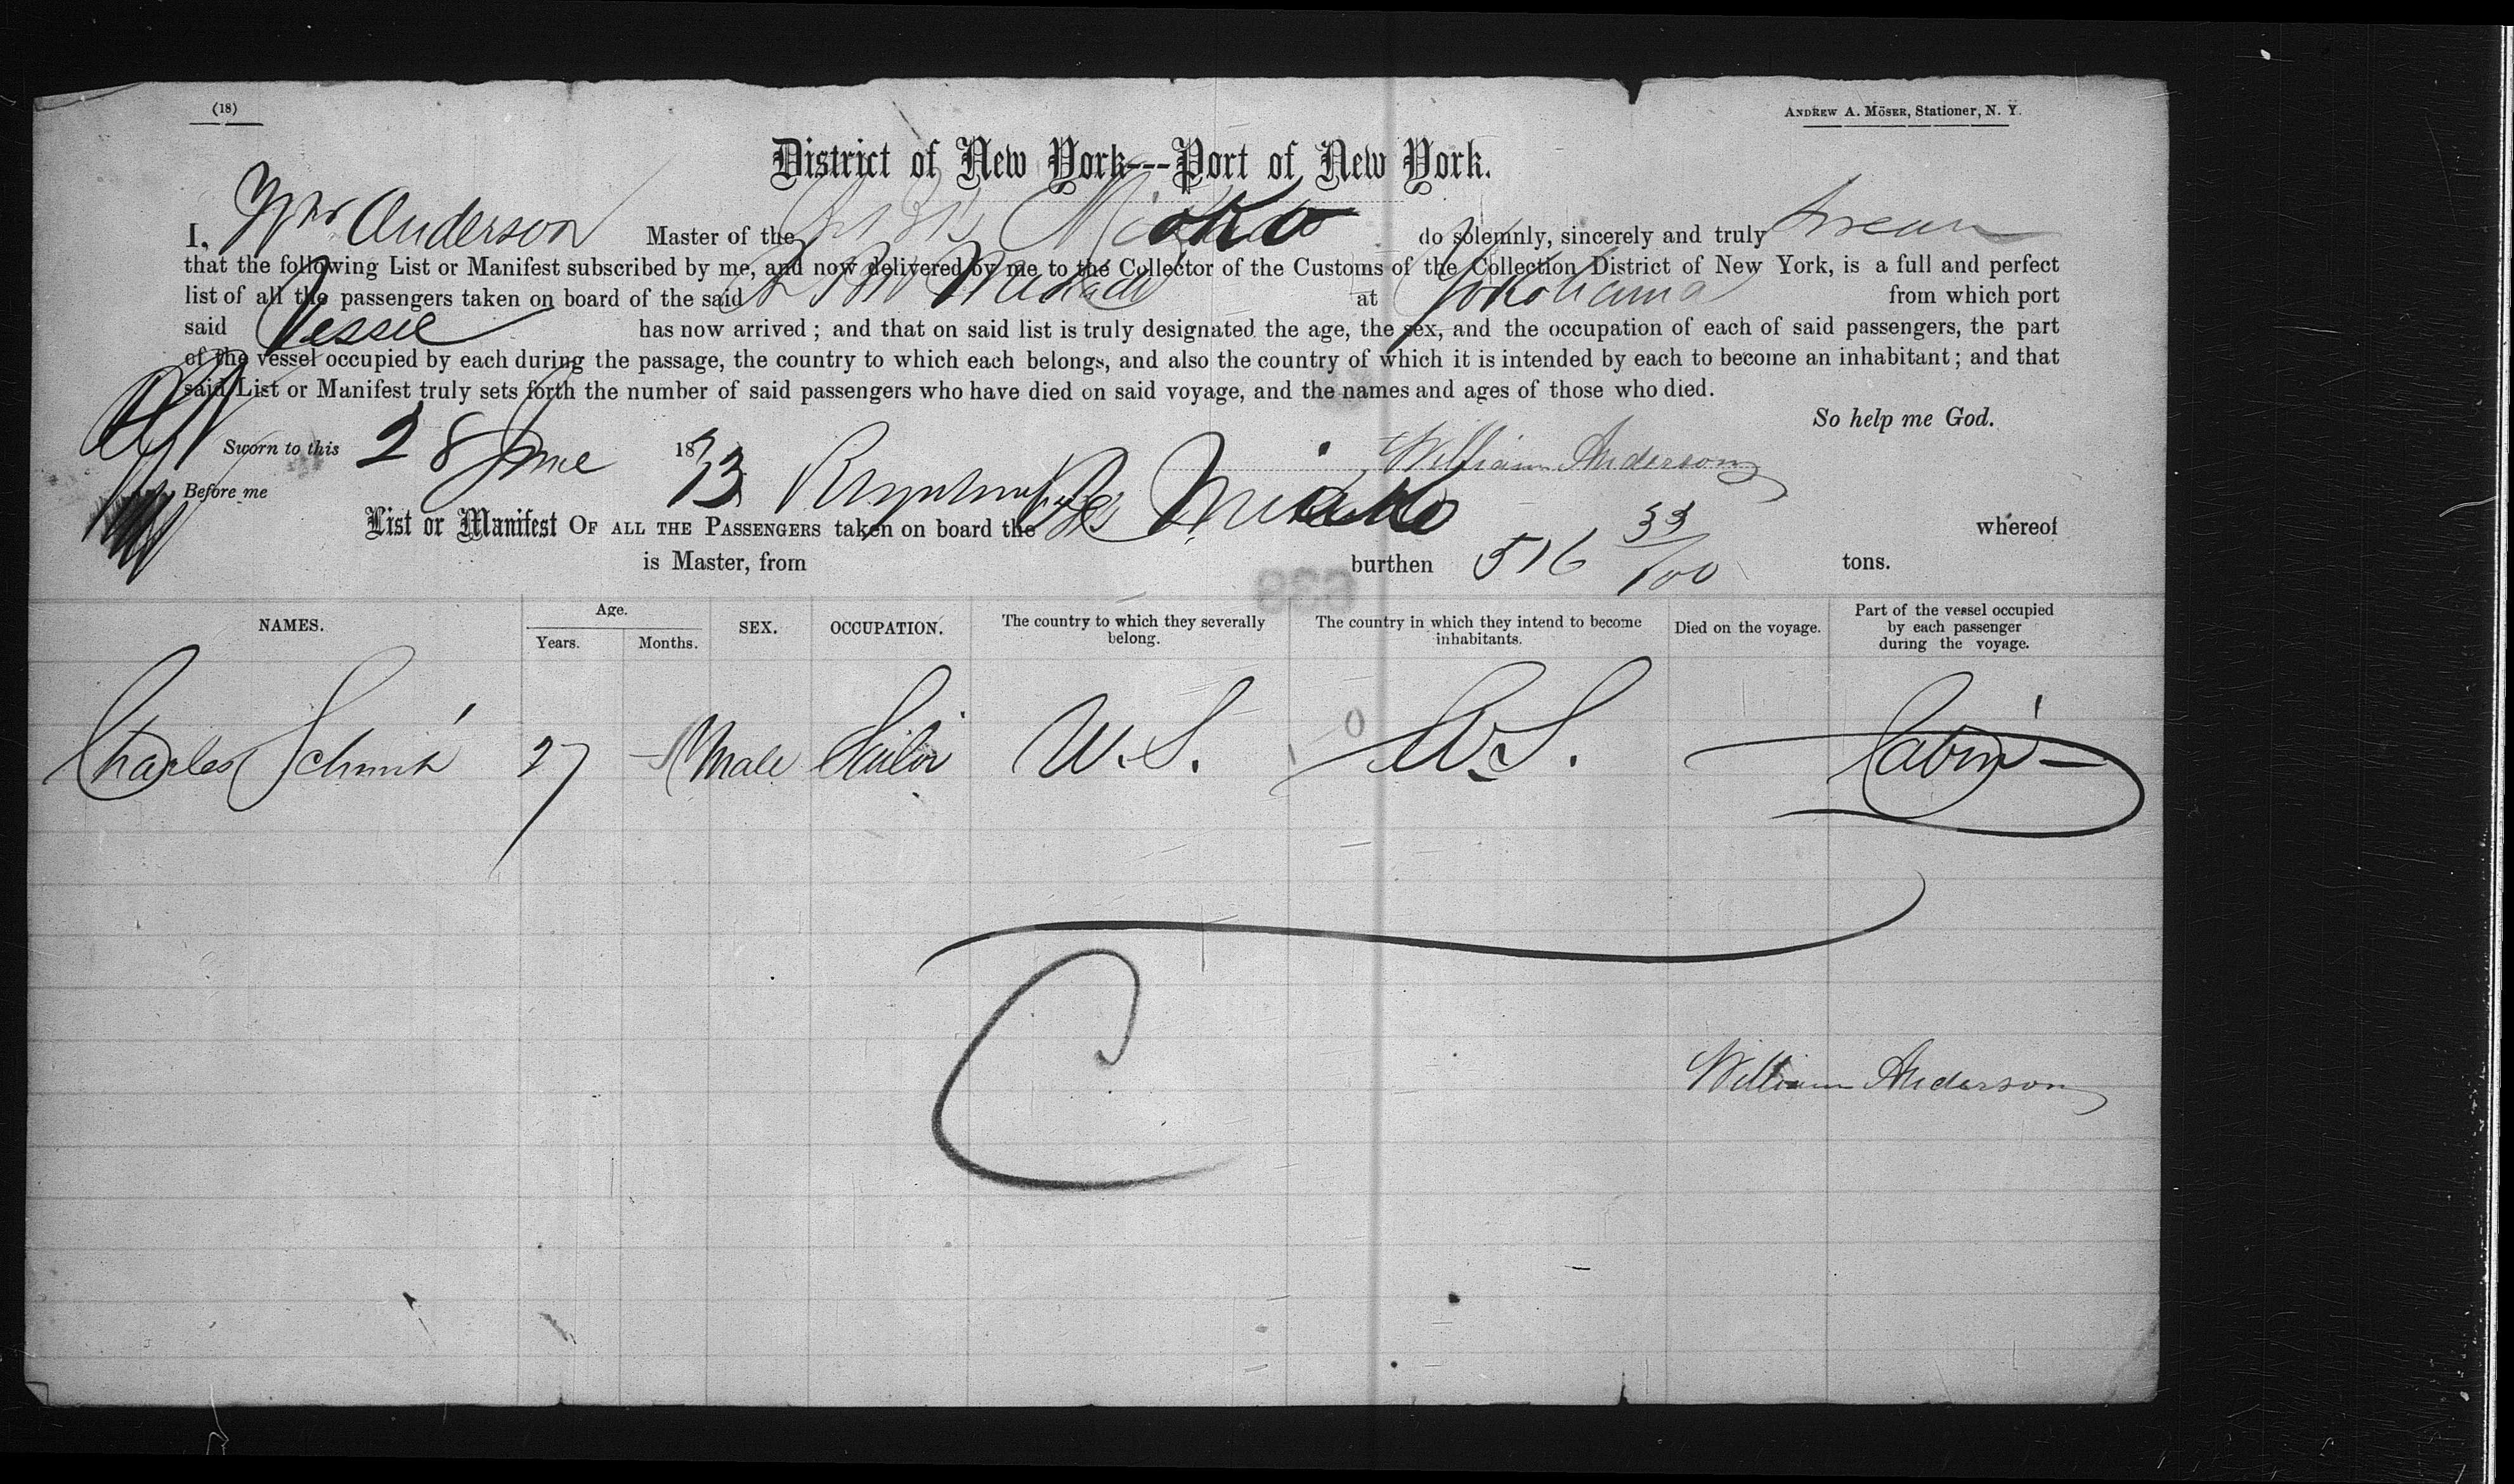 (18)
ANDREW A. MÖSER, Stationer, N. Y.
District of New York---Port of New York.
I, Wm Anderson Master of the do solemnly, sincerely and truly swear
that the following List or Manifest subscribed by me, and now delivered by me to the Collector of the Customs of the Collection District of New York, is a full and perfect
list of all the passengers taken on board of the said at Yokohama from which port
said Vessel has now arrived; and that on said list is truly designated the age, the sex, and the occupation of each of said passengers, the part
of the vessel occupied by each during the passage, the country to which each belongs, and also the country of which it is intended by each to become an inhabitant; and that
said List or Manifest truly sets forth the number of said passengers who have died on said voyage, and the names and ages of those who died.
So help me God.
Sworn to this 28 June 1873 William Anderson
Before me
List or Manifest OF ALL THE PASSENGERS taken on board the whereof
is Master, from burthen 516 33/100 tons.
NAMES. Age. Years. Months. SEX. OCCUPATION. The country to which they severally belong. The country in which they intend to become inhabitants. Died on the voyage. Part of the vessel occupied by each passenger during the voyage.
Charles 27 - Male Sailor U.S. U.S. Cabin
C
William Anderson